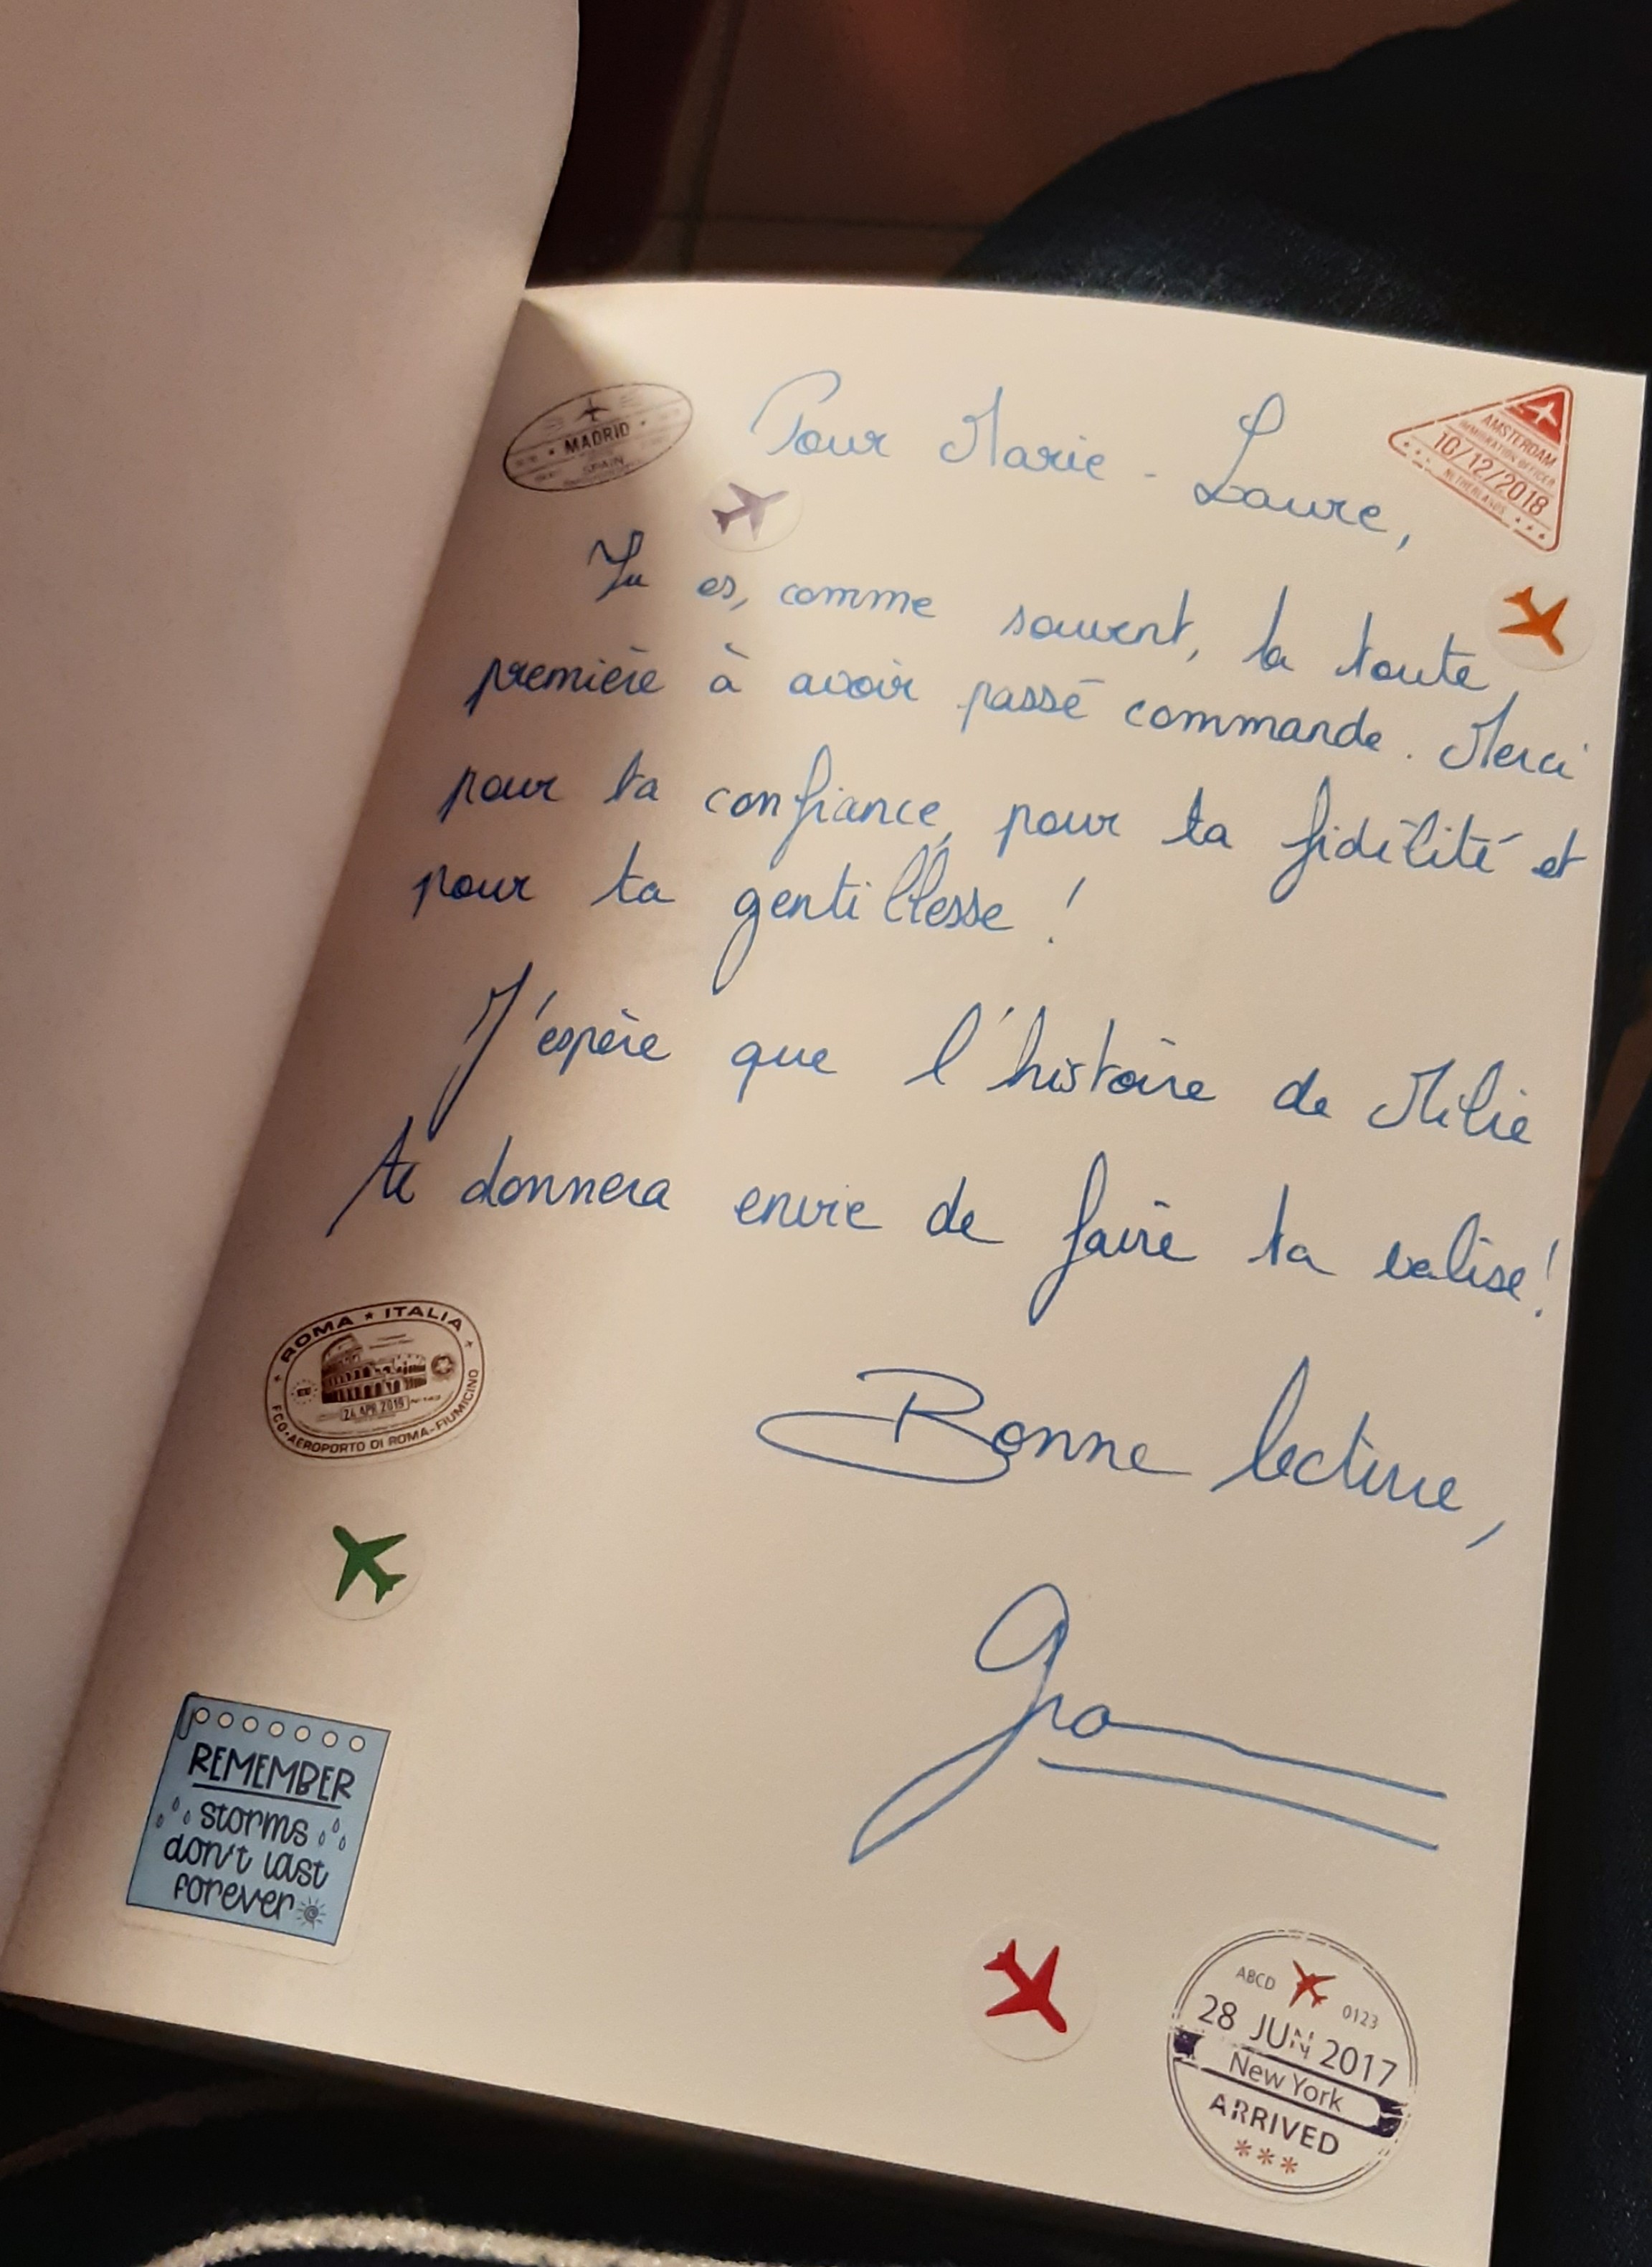 MADRID
SPAIN
Pour Marie-Laure,
AMSTERDAM
IMMIGRATION OFFICER
10/12/2018
NETHERLANDS
Tu es, comme souvent, la toute
première à avoir passé commande. Merci
pour ta confiance, pour ta fidélité et
pour ta gentillesse !
J'espère que l'histoire de Milie
te donnera envie de faire ta valise !
ROMA ★ ITALIA
24 APR 2019
FCO • AEROPORTO DI ROMA-FIUMICINO
Bonne lecture,
REMEMBER
storms
don't last
forever
ABCD
0123
28 JUN 2017
New York
ARRIVED
***